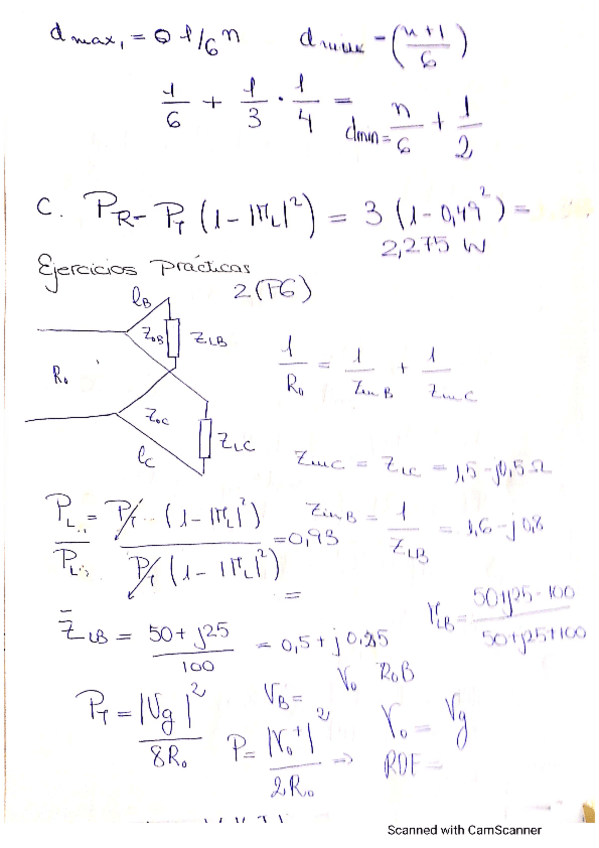 d max, = 0 1/6 n    d min = -(n+1/6)
1/6 + 1/3 · 1/4 =    dmin = n/6 + 1/2
C. PR = PT (1 - |ΓL|²) = 3 (1 - 0,49²) =
2,275 W
Ejercicios Prácticas
2 (P6)
lB
Z0B    ZLB
R0    1/R0 = 1/Zin B + 1/Zin C
Z0C
ZLC
lC    Zinc = ZLC = 1,5 - j0,5 Ω
PL/PL = PT (1 - |ΓL|²) / PT (1 - |ΓL|²) = 0,93    Zin B = 1/ZLB = 1,6 - j0,8
=
Z̄LB = 50 + j25 / 100 = 0,5 + j 0,25    ΓLB = 50+j25-100 / 50+j25+100
PT = |Vg|² / 8R0    VB = V0 R0B
P = |V0⁺|² / 2R0 ⇒    V0 = Vg
RDE =
Scanned with CamScanner